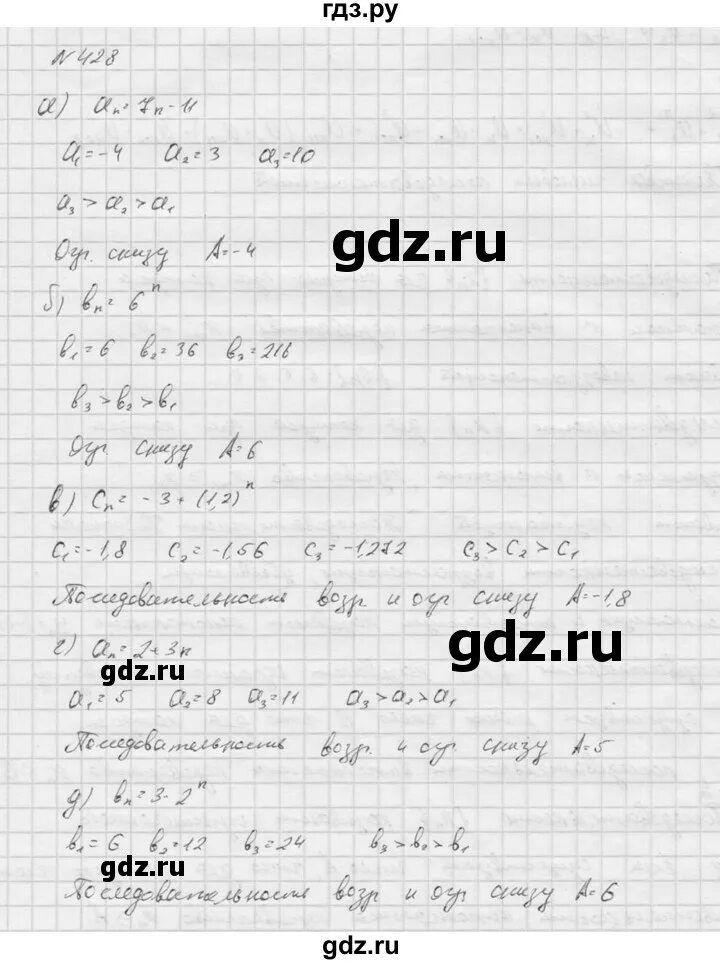 гдз.ру
№428
а) aₙ=7n-11
a₁=-4 a₂=3 a₃=10
a₃>a₂>a₁
Огр. снизу A=-4
gdz.ru
б) bₙ=6ⁿ
b₁=6 b₂=36 b₃=216
b₃>b₂>b₁
Огр. снизу A=6
в) Cₙ=-3+(1,2)ⁿ
C₁=-1,8 C₂=-1,56 C₃=-1,272 C₃>C₂>C₁
Последовательность возр. и огр снизу A=-1,8
г) aₙ=2+3n
gdz.ru
gdz.ru
a₁=5 a₂=8 a₃=11 a₃>a₂>a₁
Последовательность возр. и огр. снизу A=5
д) bₙ=3·2ⁿ
b₁=6 b₂=12 b₃=24 b₃>b₂>b₁
gdz.ru
Последовательность возр и огр снизу A=6
gdz.ru